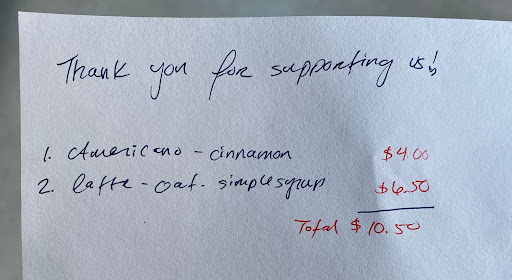 Thank you for supporting us!
1. Americano - cinnamon $4.00
2. latte - oat. simple syrup $6.50
Total $10.50